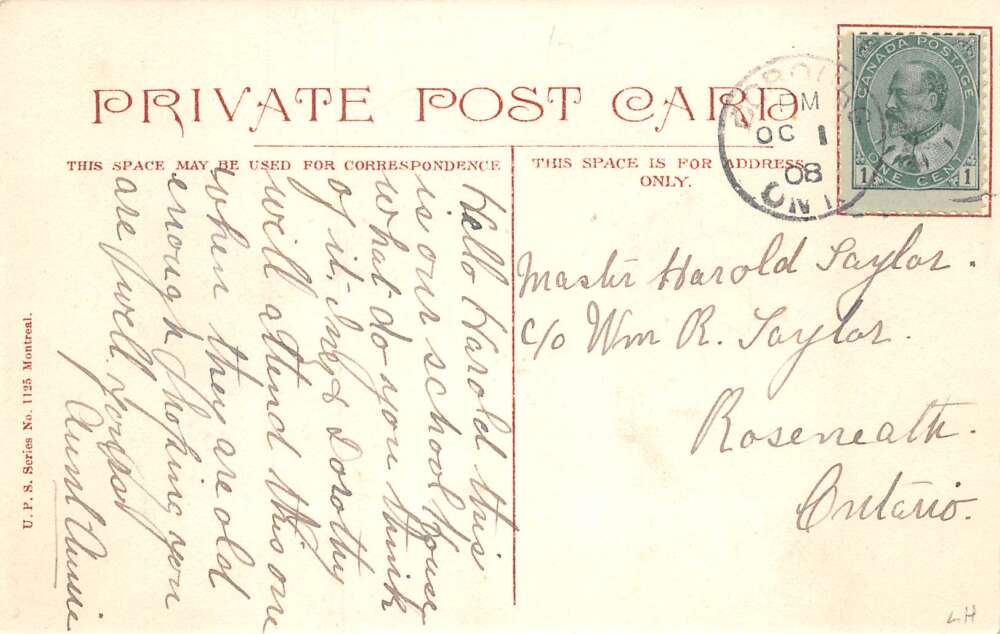 PRIVATE POST CARD
THIS SPACE MAY BE USED FOR CORRESPONDENCE
THIS SPACE IS FOR ADDRESS
ONLY.
CANADA POSTAGE
1 ONE CENT 1
PM
OC 1
08
ONT
Hello Harold this
is our school house
what do you think
of it. &  Dorothy
will attend this one
when they are old
enough hoping you
are well.
Aunt
Master Harold Taylor.
c/o Wm R. Taylor.
Roseneath.
Ontario.
U. P. S. Series No. 1125 Montreal.
LH